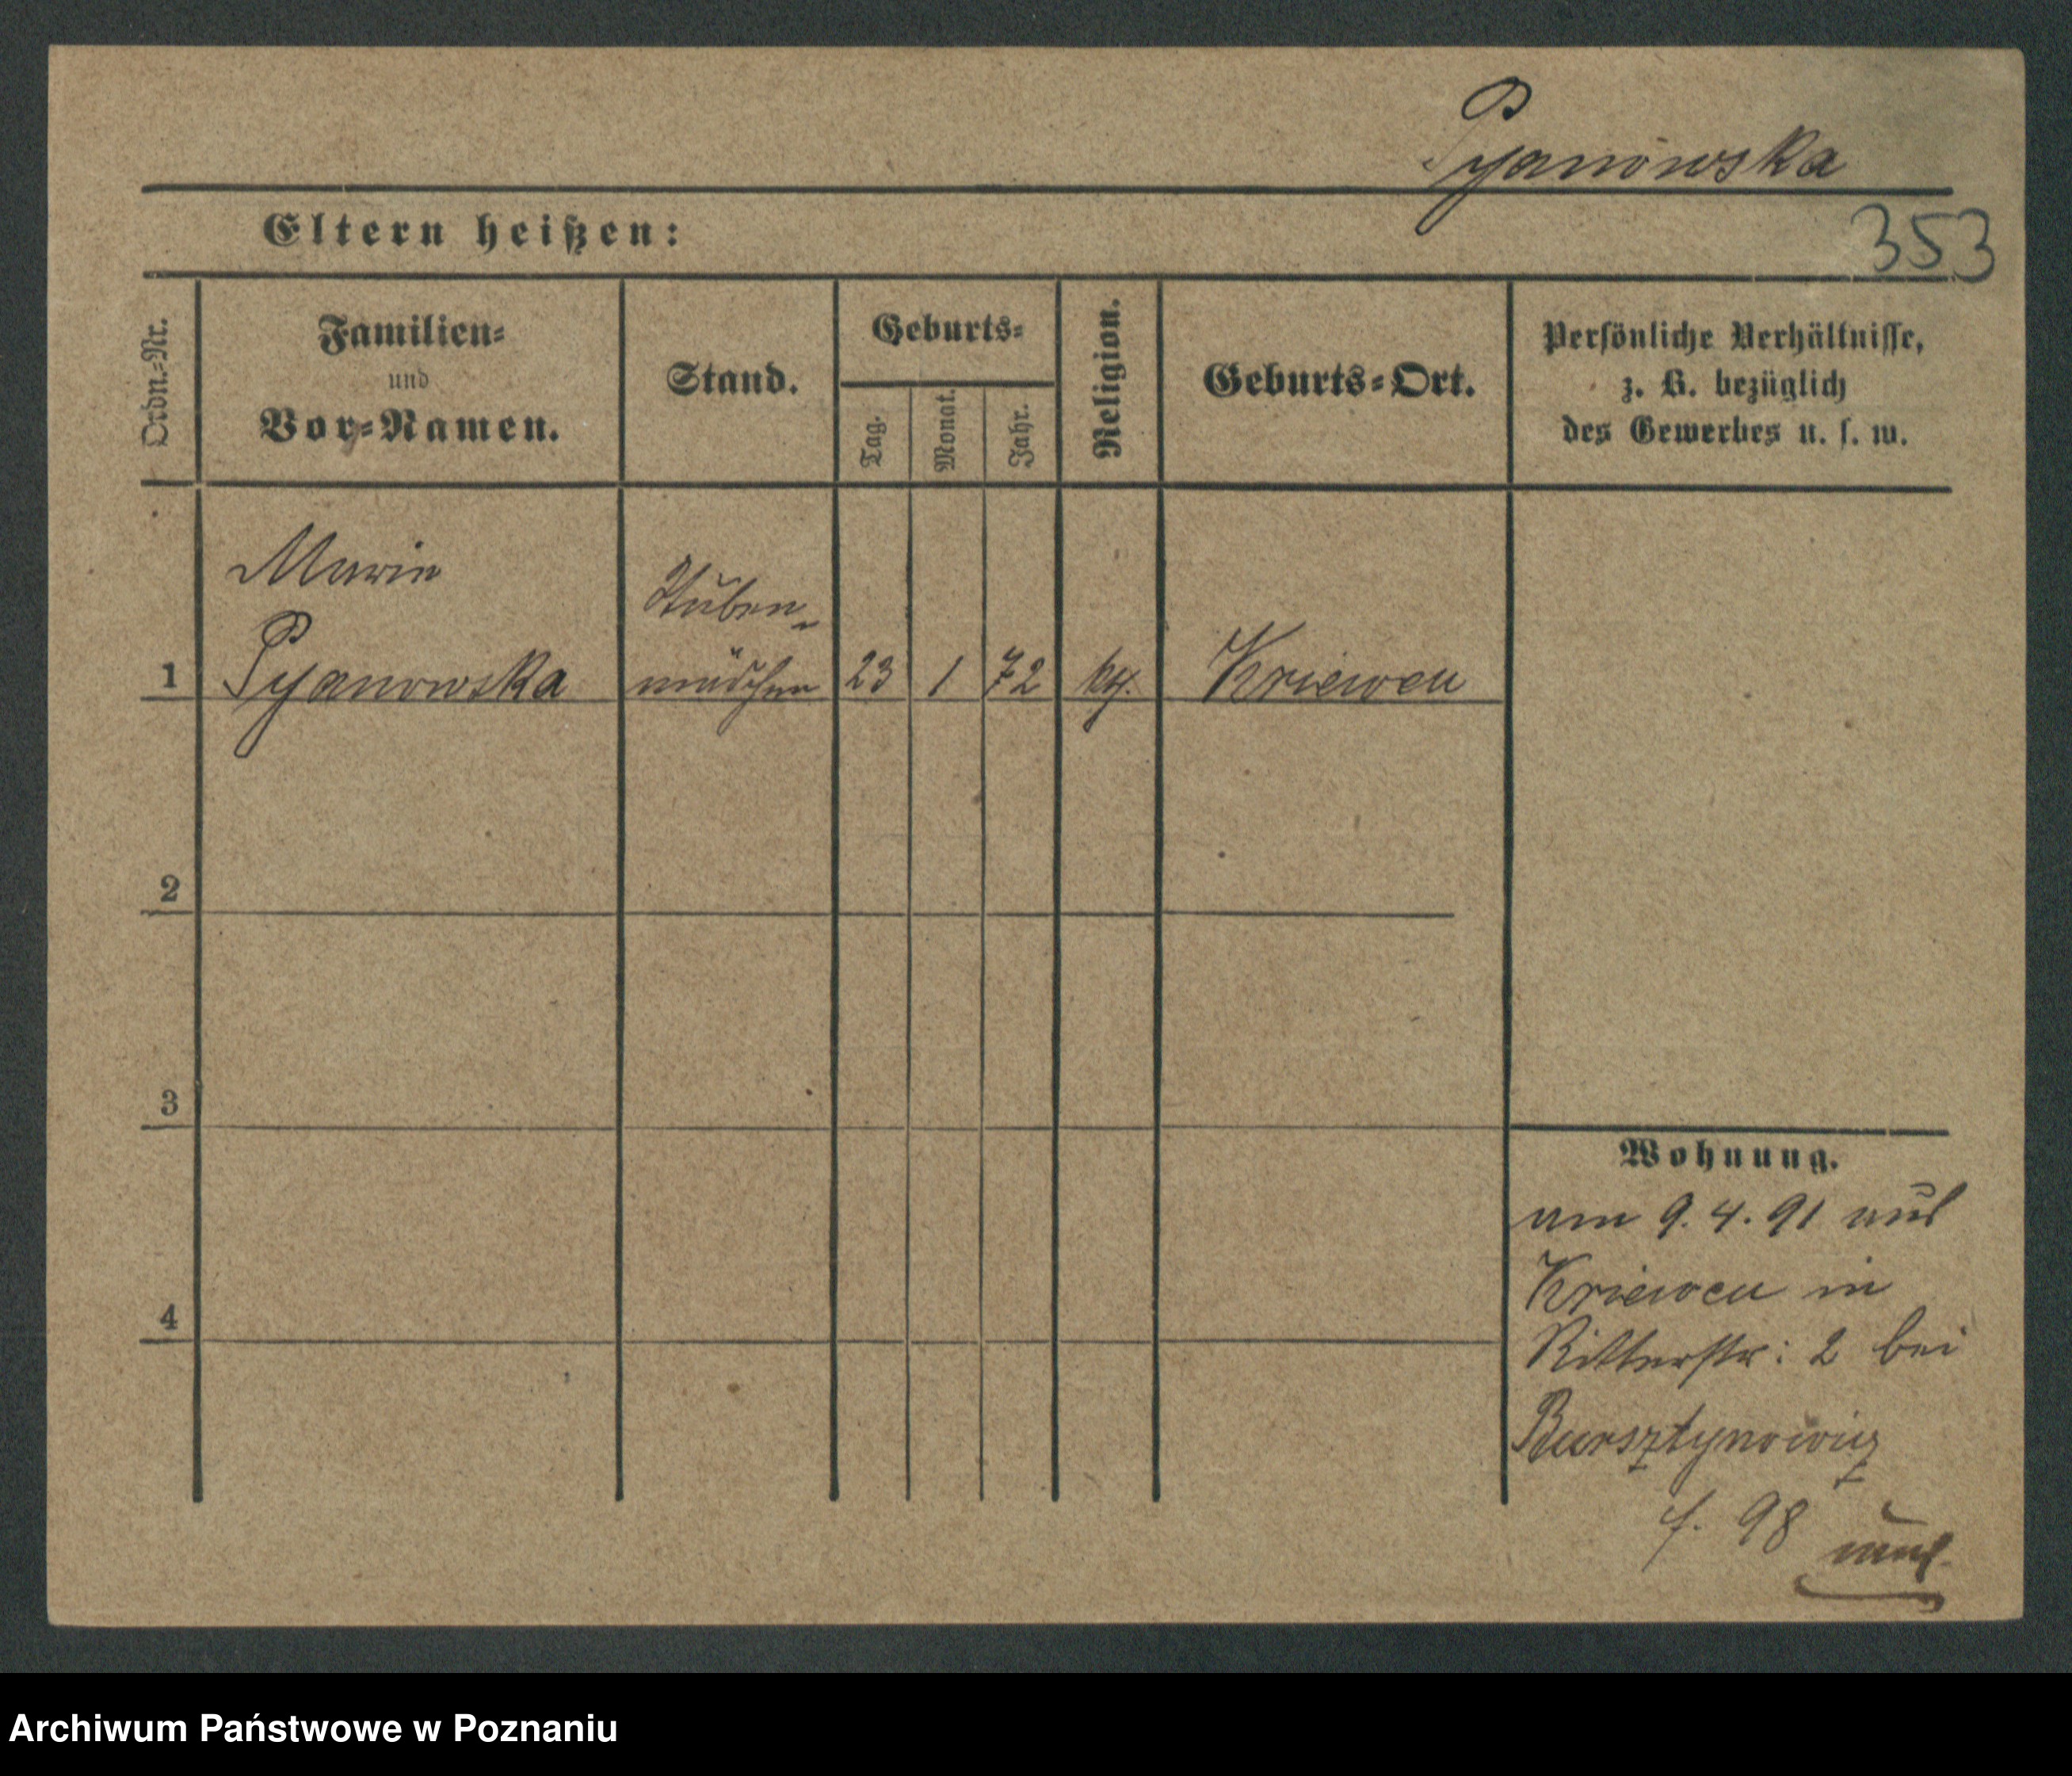 Pyanowska
Eltern heißen:
353
Ordn.-Nr.
Familien-
und
Vor-Namen.
Stand.
Geburts-
Tag.
Monat.
Jahr.
Religion.
Geburts-Ort.
Persönliche Verhältnisse,
z. B. bezüglich
des Gewerbes u. s. w.
Marie
Stuben-
1 Pyanowska mädchen 23 1 72 Kriewen
2
3
4
Wohnung.
am 9. 4. 91 aus
Kriewen in
Ritterstr: 2 bei
Bursztynowicz
f. 98
Archiwum Państwowe w Poznaniu